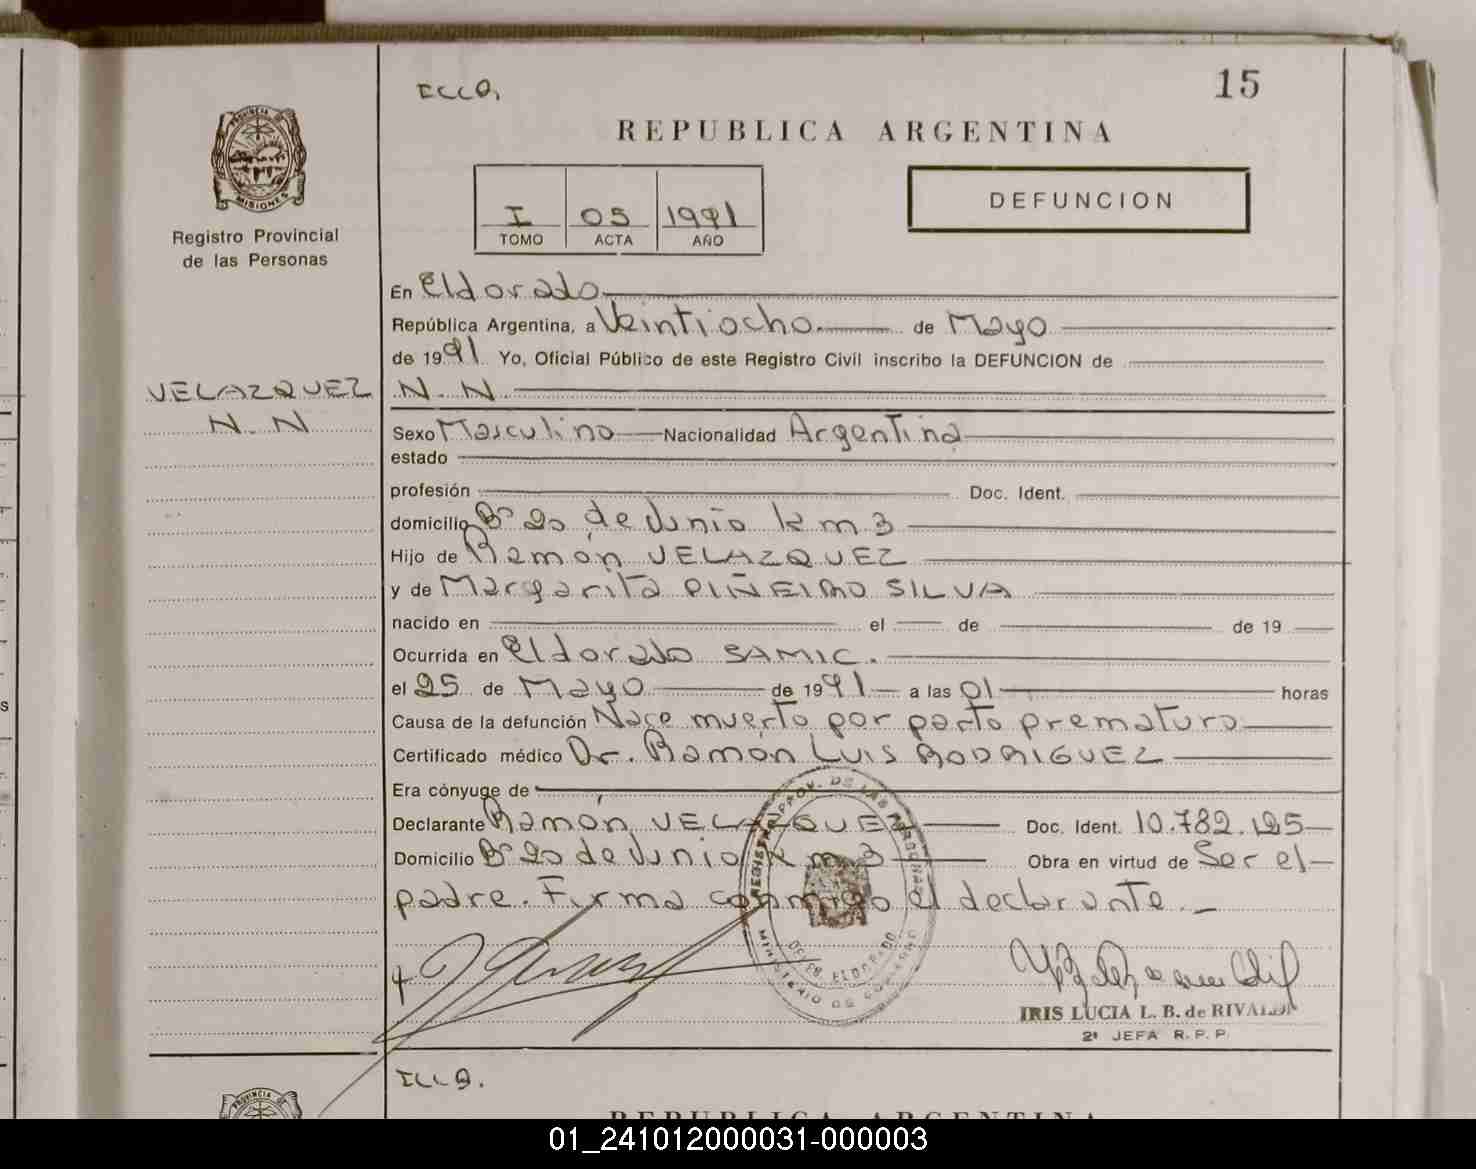 15
REPUBLICA ARGENTINA
PROVINCIA DE
MISIONES
Registro Provincial
de las Personas
I 05 1991
TOMO ACTA AÑO
DEFUNCION
En Eldorado
República Argentina, a Veintiocho de Mayo
de 1991 Yo, Oficial Público de este Registro Civil inscribo la DEFUNCION de
VELAZQUEZ
N. N.
N. N
Sexo Masculino Nacionalidad Argentina
estado
profesión Doc. Ident.
domicilio B° 20 de Junio km 3
Hijo de Ramón VELAZQUEZ
y de Margarita PIÑEIRO SILVA
nacido en el de de 19
Ocurrida en Eldorado SAMIC.
el 25 de Mayo de 1991 a las 01 horas
Causa de la defunción Nace muerto por parto prematuro
Certificado médico Dr. Ramón LUIS RODRIGUEZ
Era cónyuge de
Declarante Ramón VELAZQUEZ Doc. Ident. 10.782.125
Domicilio B° 20 de Junio km 3 Obra en virtud de Ser el
padre. Firma conmigo el declarante.
REGISTRO PROV. DE LAS PERSONAS
ELDORADO
MINISTERIO DE GOBIERNO
IRIS LUCIA L. B. de RIVALDI
2ª JEFA R. P. P.
PROVINCIA DE
REPUBLICA ARGENTINA
01_241012000031-000003